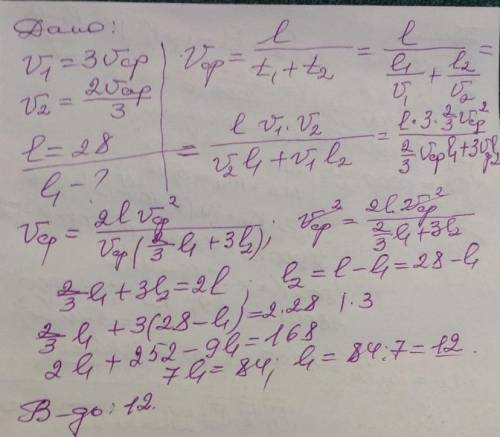 Дано:
V₁ = 3Vср
V₂ = 2Vср/3
l = 28
l₁ - ?
Vср = l/(t₁ + t₂) = l/(l₁/V₁ + l₂/V₂) =
= l V₁·V₂/(V₂l₁ + V₁l₂) = l·3·2/3 Vср²/(2/3 Vср l₁ + 3Vср l₂)
Vср = 2l Vср²/(Vср(2/3 l₁ + 3l₂)); Vср² = 2l·2Vср²/(2/3 l₁ + 3l₂)
2/3 l₁ + 3l₂ = 2l; l₂ = l - l₁ = 28 - l₁
2/3 l₁ + 3(28 - l₁) = 2·28 |·3
2l₁ + 252 - 9l₁ = 168
7l₁ = 84; l₁ = 84:7 = 12.
В-дь: 12.